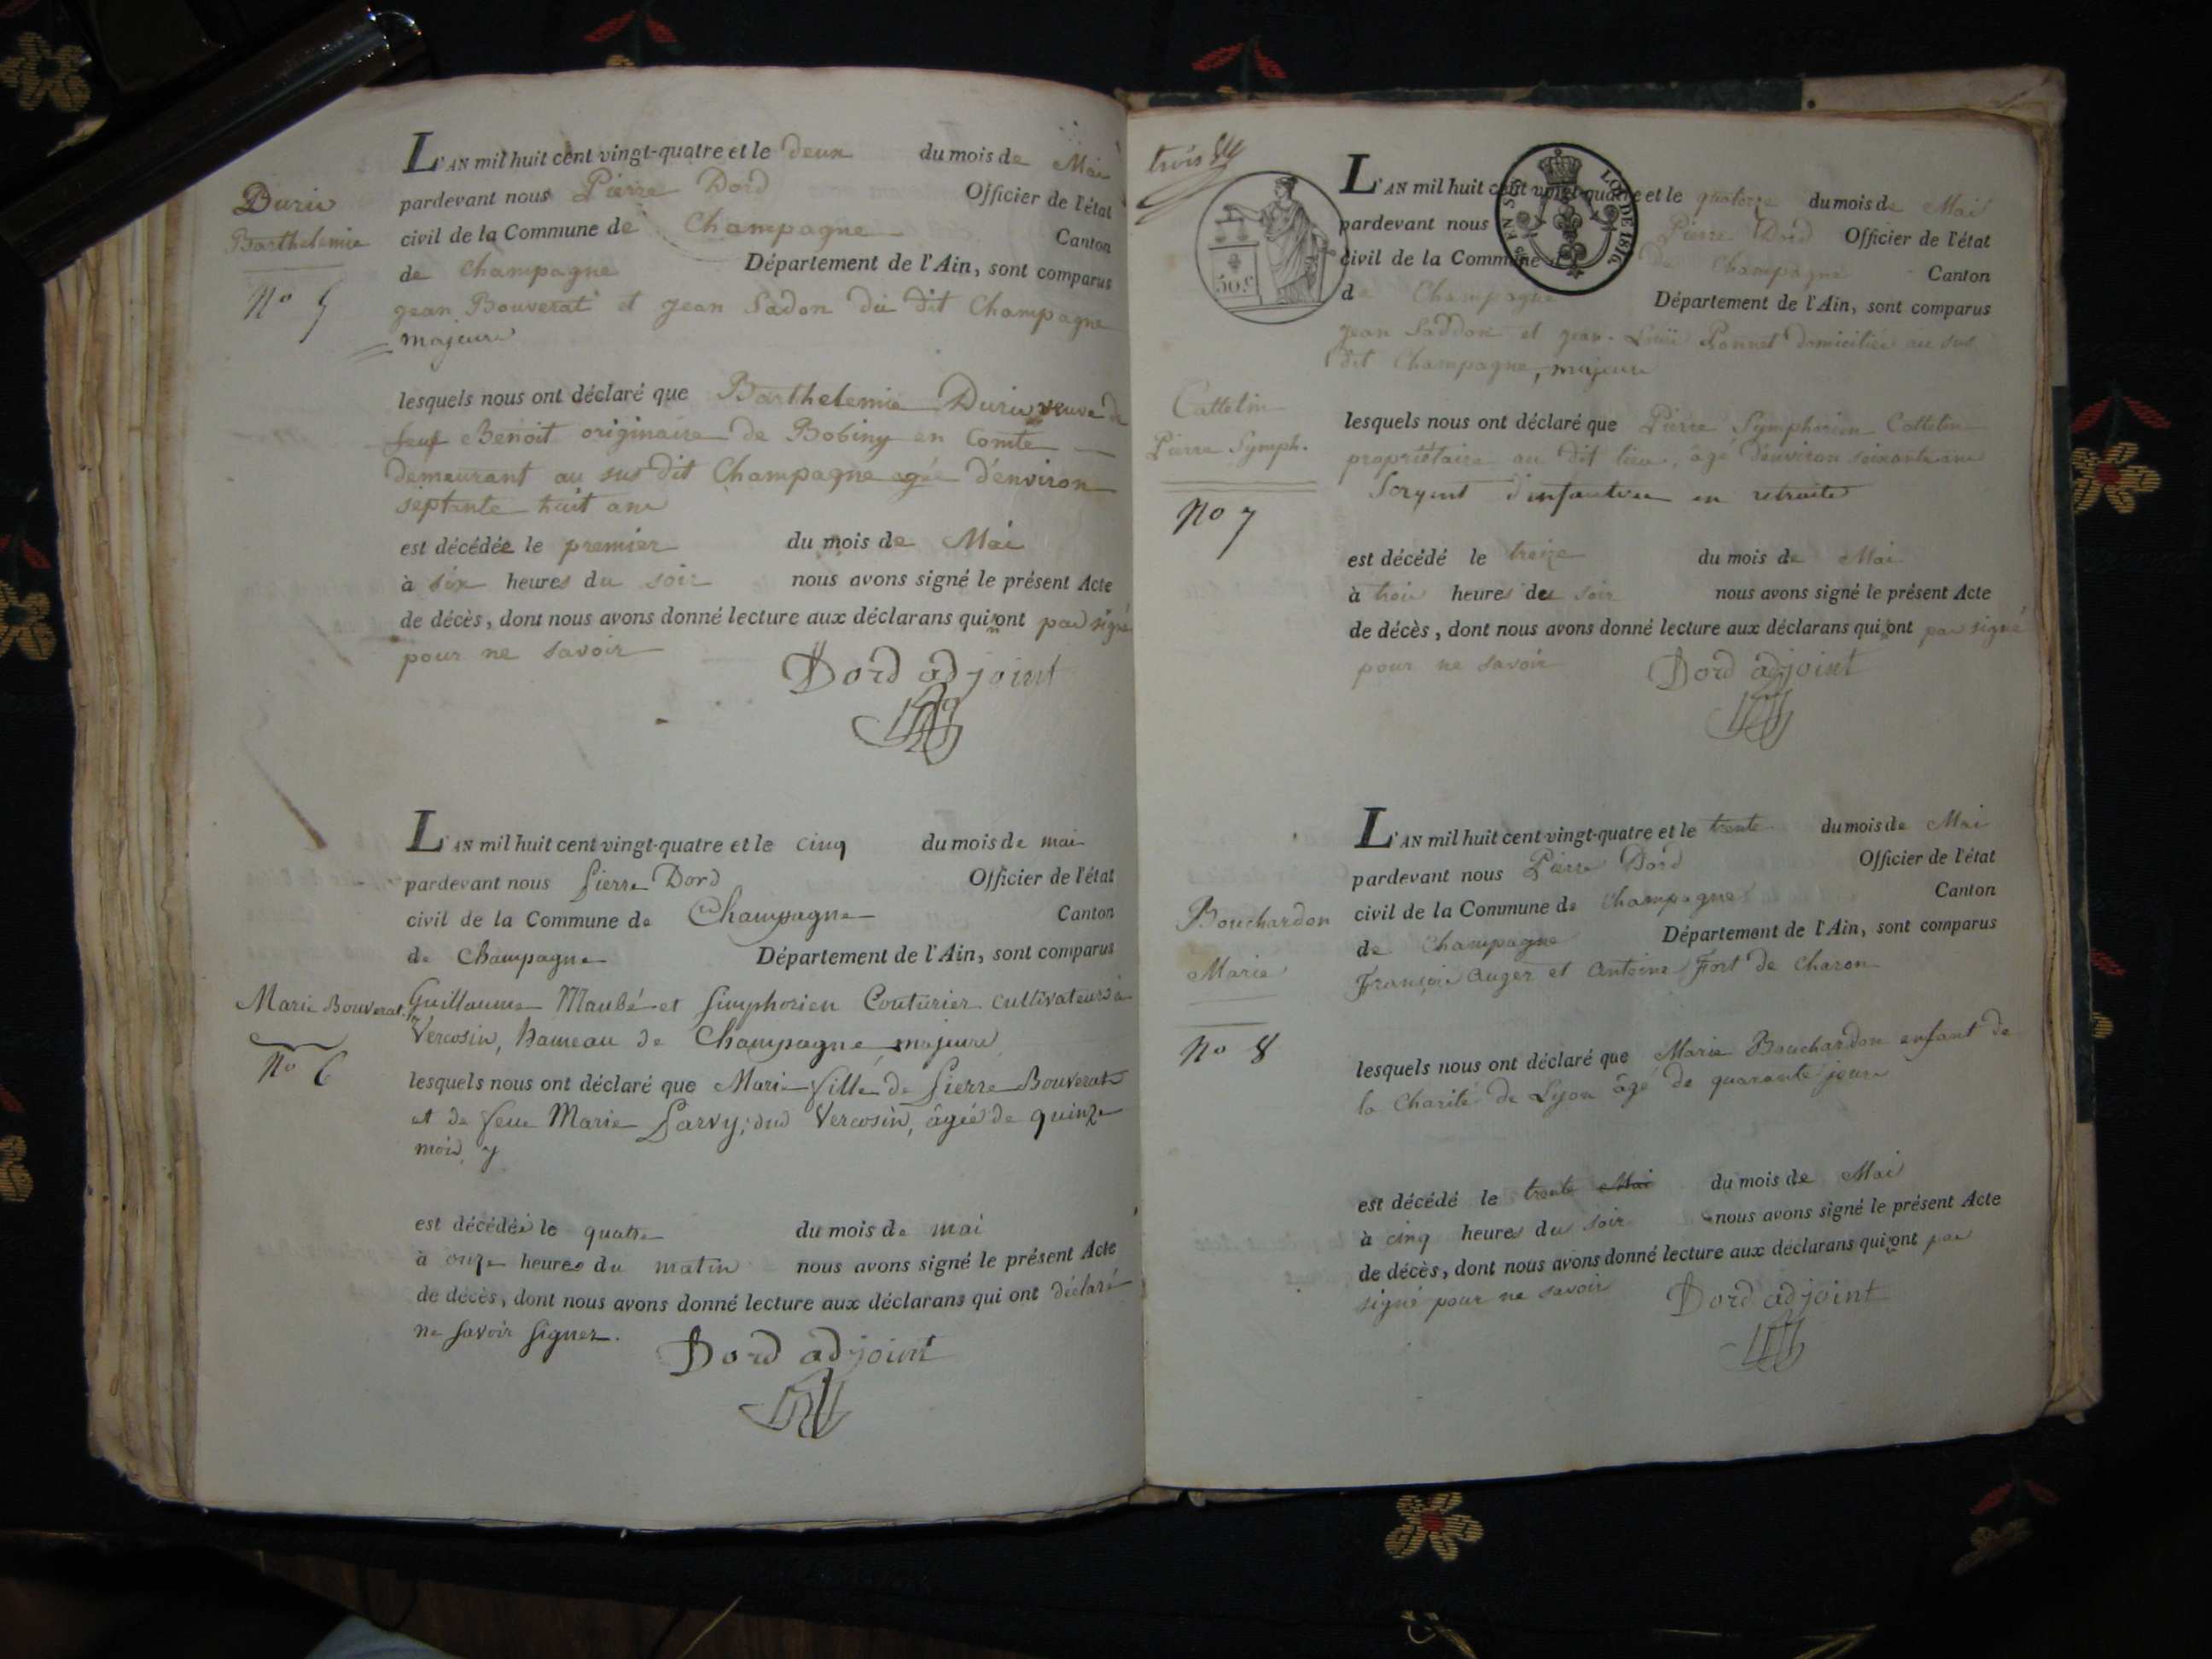 L'AN mil huit cent vingt-quatre et le deux du mois de Mai
pardevant nous Pierre Dord Officier de l'état
civil de la Commune de Champagne Canton
de Champagne Département de l'Ain, sont comparus
jean Bouverat et jean Sadon du dit Champagne
majeurs
Duriu
Barthelemie
No 5
lesquels nous ont déclaré que Barthelemie Duriu veuve de
feuf Benoit originaire de Bobiny en Comte
demeurant au sus dit Champagne agée d'environ
septante huit ans
est décédée le premier du mois de Mai
à six heures du soir nous avons signé le présent Acte
de décès, dont nous avons donné lecture aux déclarans qui n'ont pas signé
pour ne savoir
Dord adjoint
L'AN mil huit cent vingt-quatre et le cinq du mois de mai
pardevant nous Pierre Dord Officier de l'état
civil de la Commune de Champagne Canton
de Champagne Département de l'Ain, sont comparus
Marie Bouverat
No 6
Guillaume Maubé et Simphorien Couturier cultivateurs à
Vercosin, hameau de Champagne, majeurs
lesquels nous ont déclaré que Marie fille de Pierre Bouverat
et de feue Marie Larvy, dud Vercosin, âgée de quinze
mois, y
est décédée le quatre du mois de mai
à onze heures du matin nous avons signé le présent Acte
de décès, dont nous avons donné lecture aux déclarans qui ont déclaré
ne savoir signer.
Dord adjoint
trois
50.c
EN SUS
LOI DE 1816.
L'AN mil huit cent vingt-quatre et le quatorze du mois de Mai
pardevant nous Pierre Dord Officier de l'état
civil de la Commune de Champagne Canton
de Champagne Département de l'Ain, sont comparus
jean Saddon et jean-Louis Ponnet domiciliés au sus
dit Champagne, majeurs
Cattelin
Pierre Symph.
No 7
lesquels nous ont déclaré que Pierre Symphorien Cattelin
propriétaire au dit lieu, âgé d'environ soixante ans
Sergent d'infanterie en retraite
est décédé le treize du mois de Mai
à trois heures du soir nous avons signé le présent Acte
de décès, dont nous avons donné lecture aux déclarans qui n'ont pas signé
pour ne savoir
Dord adjoint
L'AN mil huit cent vingt-quatre et le trente du mois de Mai
pardevant nous Pierre Dord Officier de l'état
civil de la Commune de Champagne Canton
de Champagne Département de l'Ain, sont comparus
François Auger et Antoine Fort de Charon
Bouchardon
Marie
No 8
lesquels nous ont déclaré que Marie Bouchardon enfant de
la Charité de Lyon âgé de quarante jours
est décédé le trente Mai du mois de Mai
à cinq heures du soir nous avons signé le présent Acte
de décès, dont nous avons donné lecture aux déclarans qui n'ont pas
signé pour ne savoir
Dord adjoint